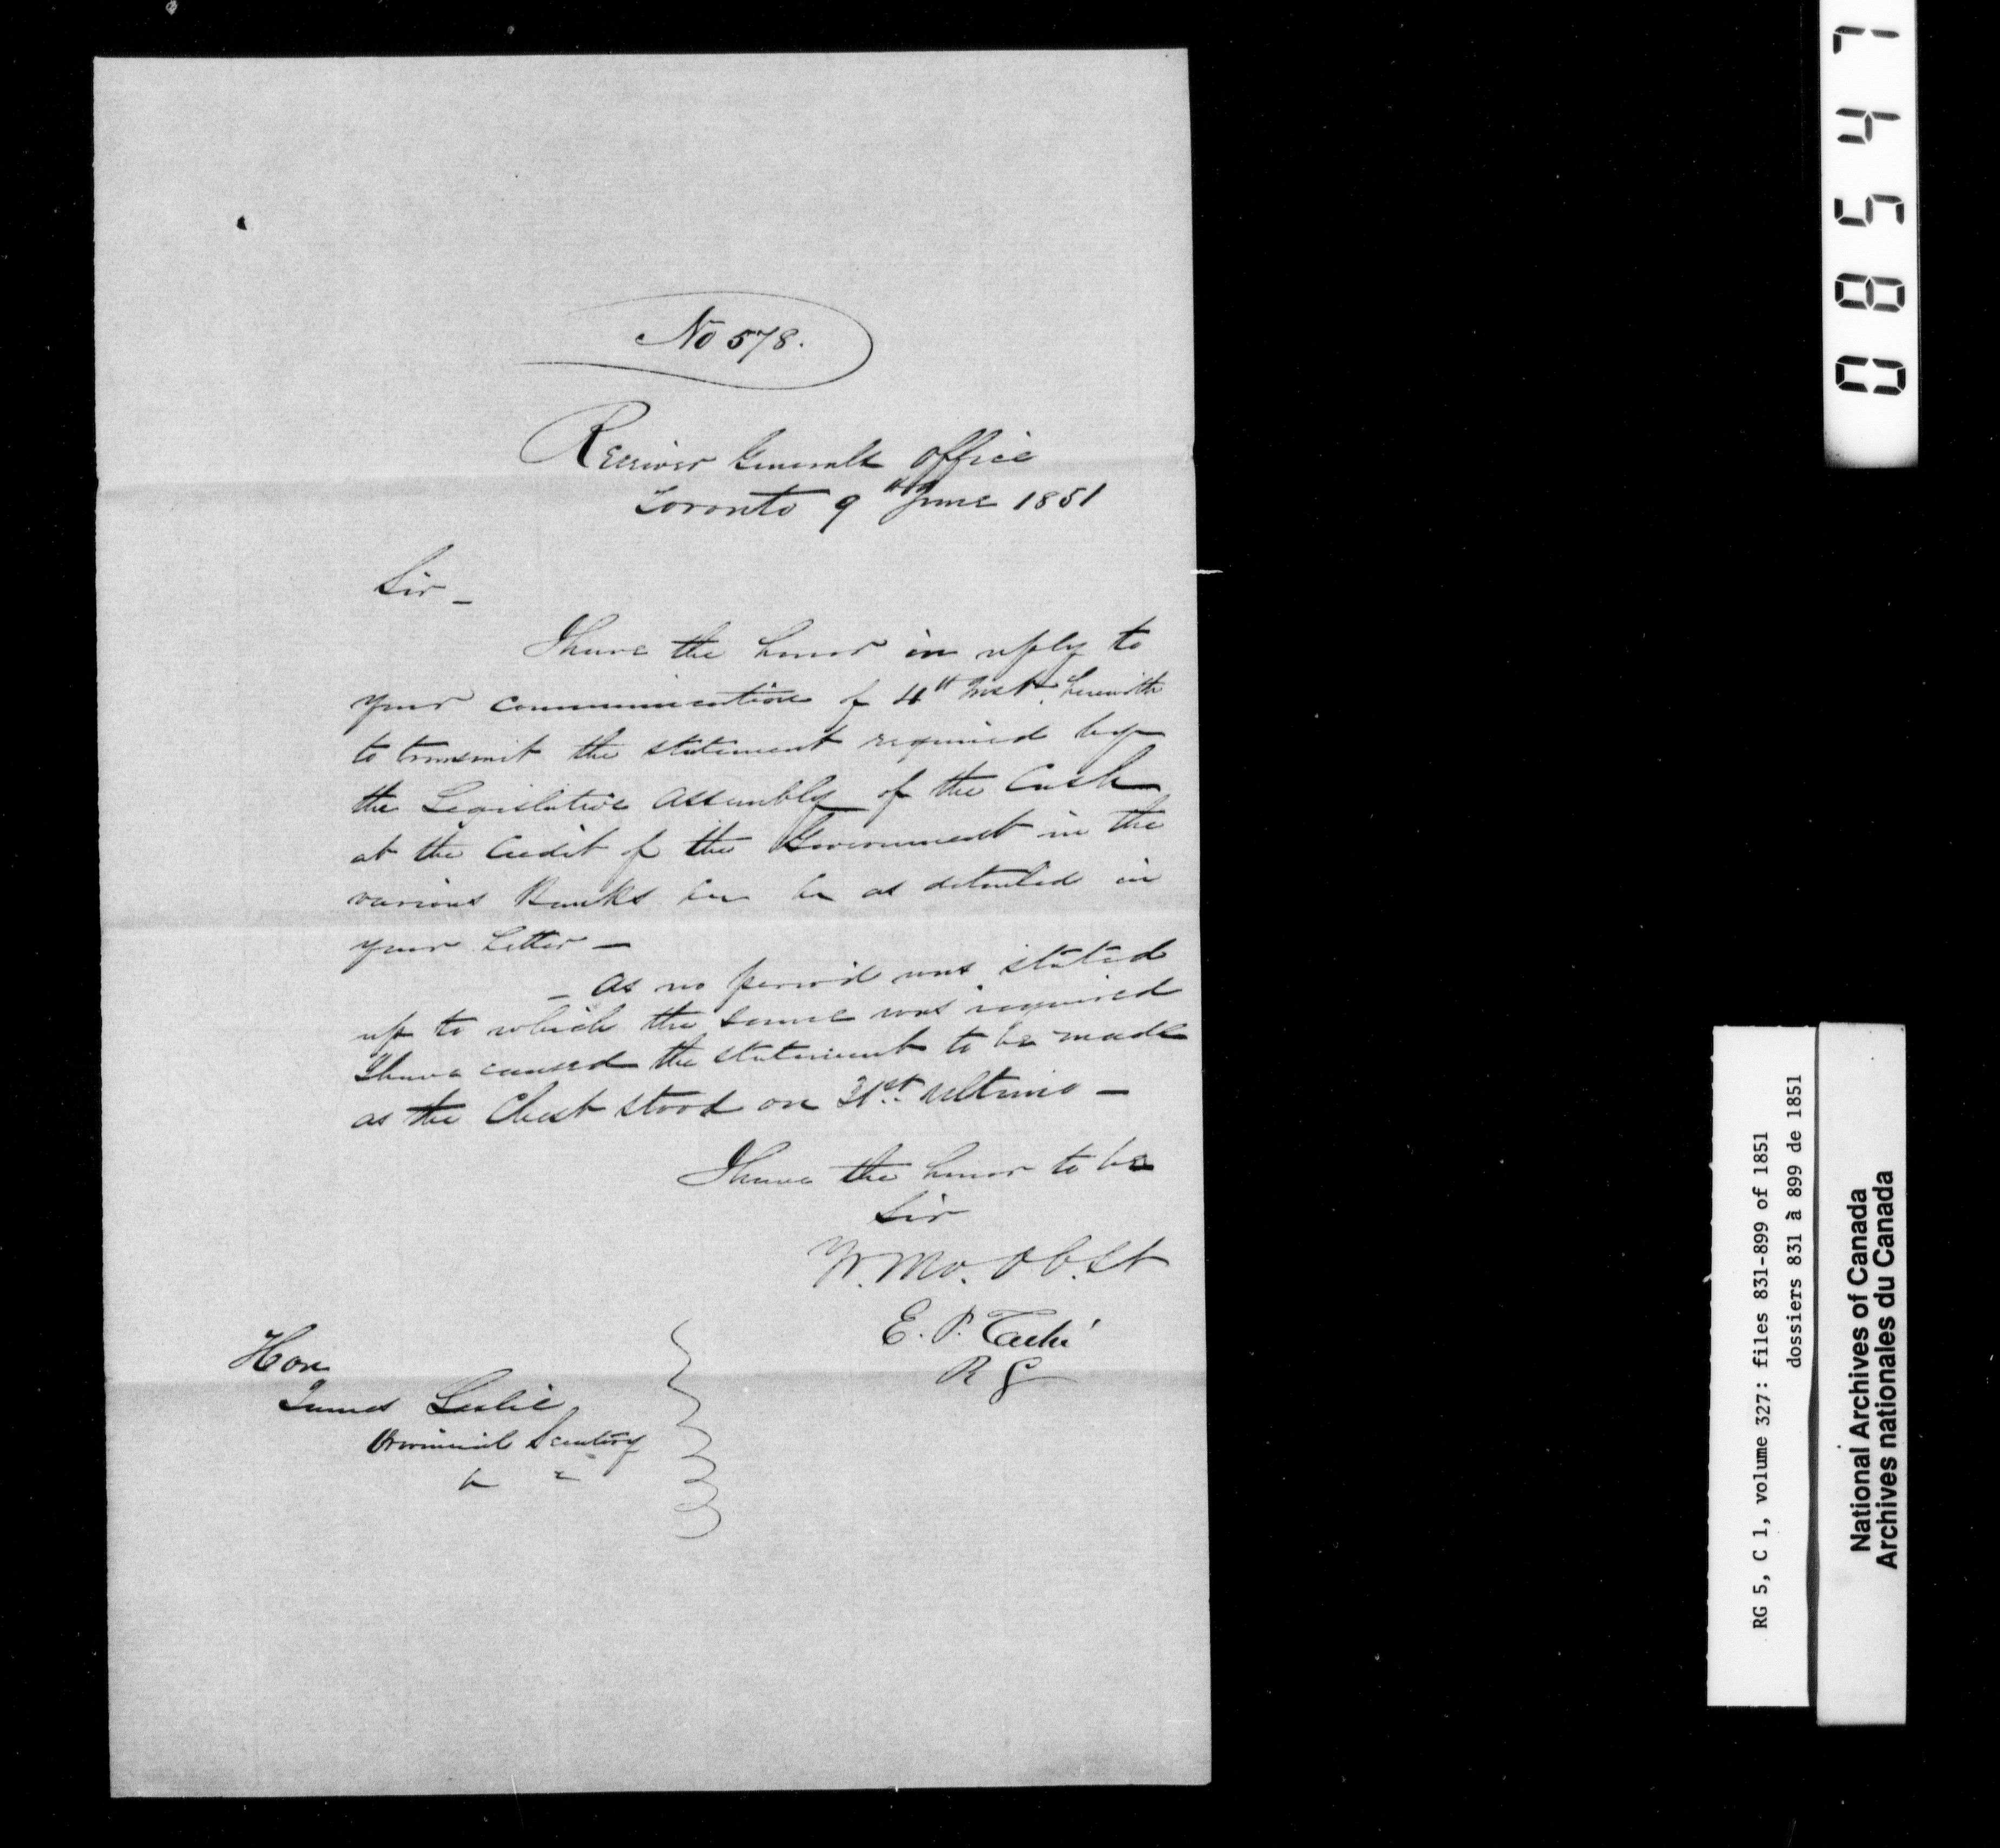 No 578.
Receiver Generals Office
Toronto 9th June 1851
Sir _
I have the honor in reply to
your communication of 4th Inst. herewith
to transmit the statement required by
the Legislative Assembly of the Cash
at the Credit of the Government in the
various Banks &c &c as detailed in
your Letter _
_ As no period was stated
up to which the same was required
I have caused the statement to be made
as the Chest stood on 31st. Ultimo _
I have the honor to be
Sir
Yr. Mo. Ob. St
E. P. Taché
R G
Hon
James Leslie
Provincial Secretary
&c &c
08547
RG 5, C 1, volume 327: files 831-899 of 1851
dossiers 831 à 899 de 1851
National Archives of Canada
Archives nationales du Canada